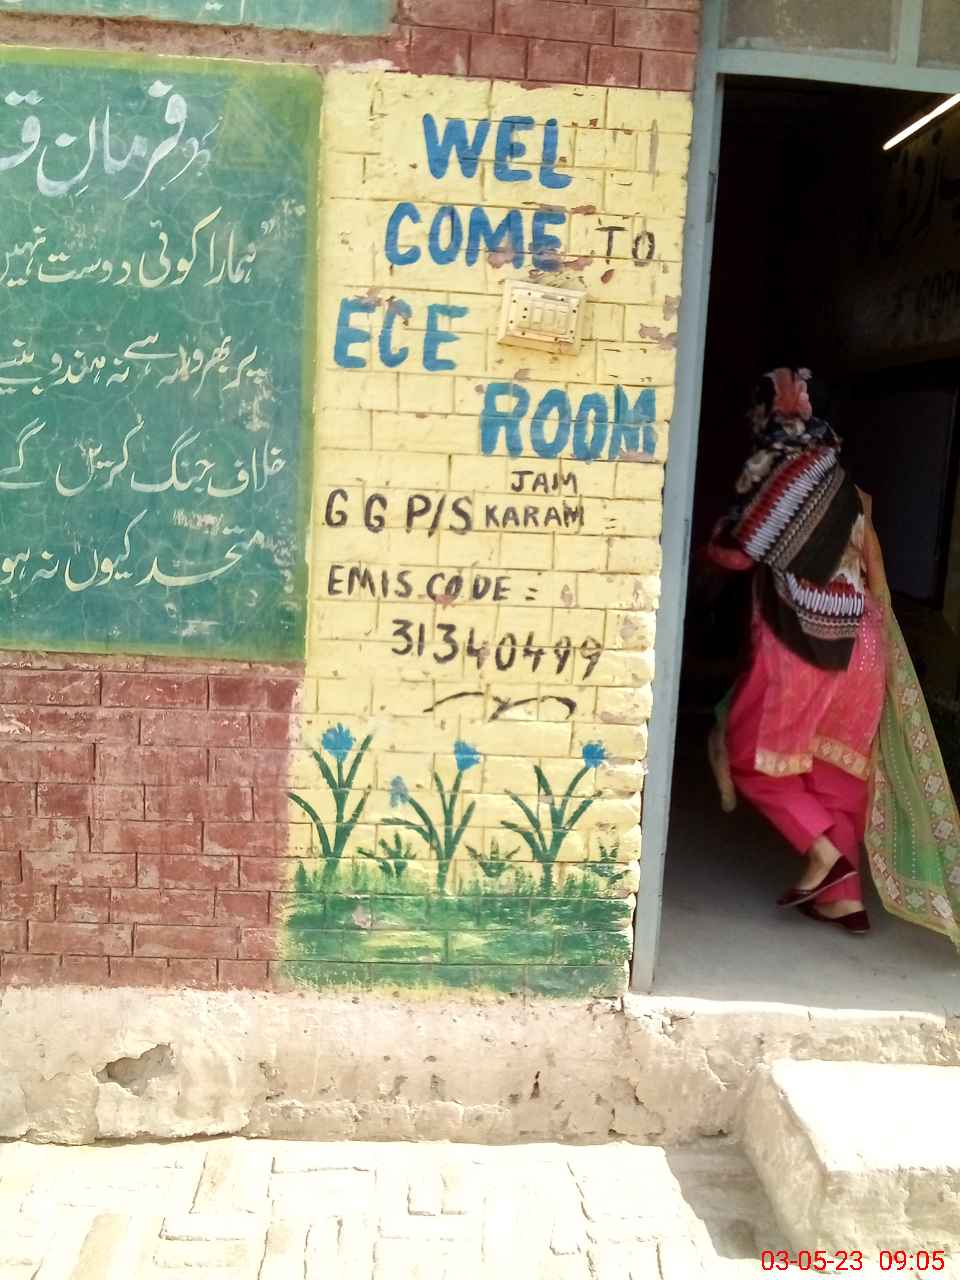 فرمانِ
"ہمارا کوئی دوست نہیں
پر بھروسہ ہے نہ ہندو بنیے
خلاف جنگ کریں گے
متحد کیوں نہ ہو
WEL
COME TO
ECE
ROOM
JAM
G G P/S KARAM
EMIS CODE =
31340499
03-05-23 09:05